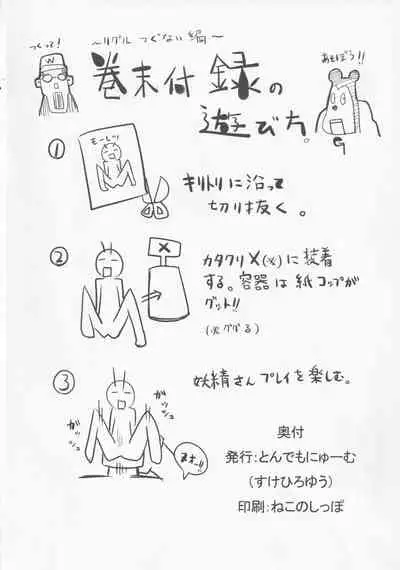 つくって!
〜リグル つぐない編〜
あそぼう!!
巻末付録の
遊び方。
①
もーしッ
キリトリに沿って
切り抜く。
②
カタクリX(※)に装着
する。容器は紙コップが
グット!!
(※ググる)
③
ガッシュ
ガッシュ
妖精さんプレイを楽しむ。
奥付
発行:とんでもにゅーむ
(すけひろゆう)
印刷:ねこのしっぽ